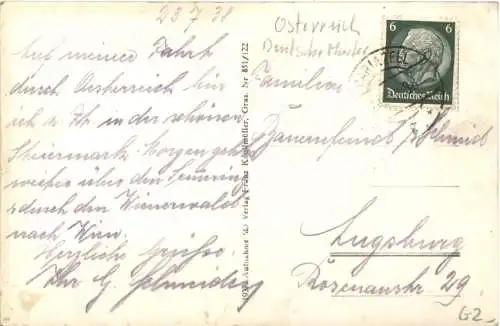 23 7 38
Auf meiner Fahrt
durch Oesterreich bin
ich z. Zt. in der schönen
Steiermark. Morgen geht
weiter über den Semmering
durch den Wienerwald
nach Wien.
Herzliche Grüsse
Ihr G. Schmid
1937 Aufnahme u. Verlag Franz Knollmüller, Graz. Nr 851/122
Österreich
Deutsche Marke
6 6
Deutsches Reich
Familien
Bauernfeind / Schmid
Augsburg
Rosenaustr. 29.
G2-